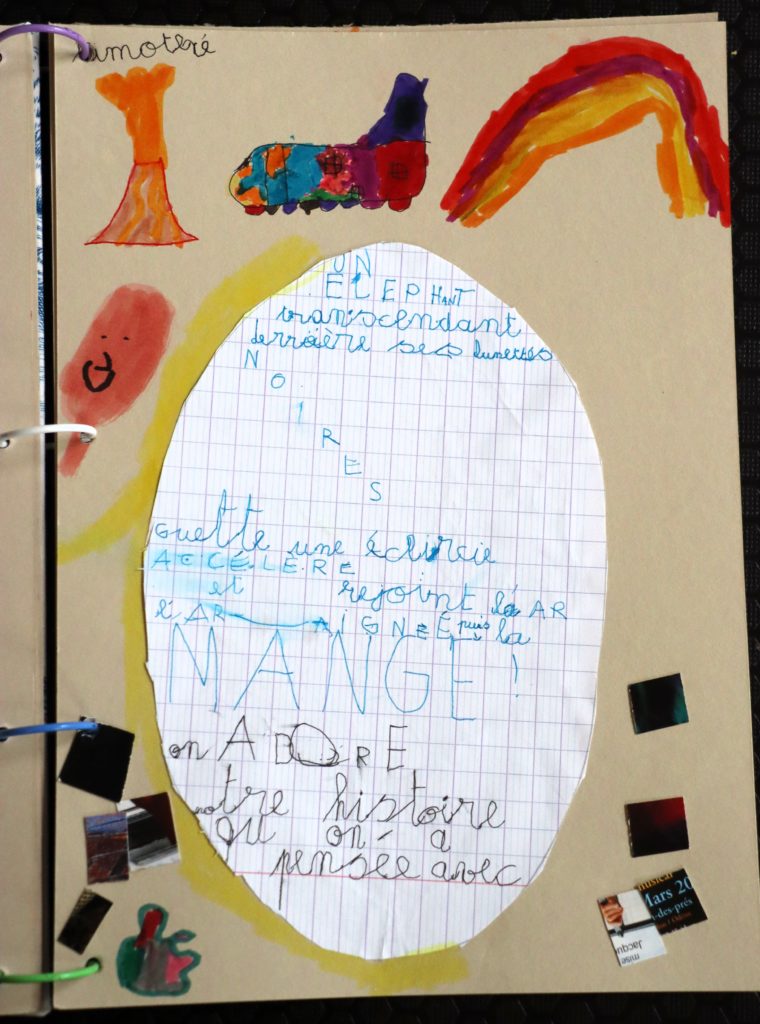 UN
ELEPHANT
transcendant
derrière ses lunettes
NOIRES
Guette une éclircie
ACCÉLÈRE
et rejoint la AR
l'AR AIGNEÉ puis la
MANGE !
on ADORE
notre histoire
qu on a
pensée avec
musical
Mars 20
n-des-prés
mise
Jacqu